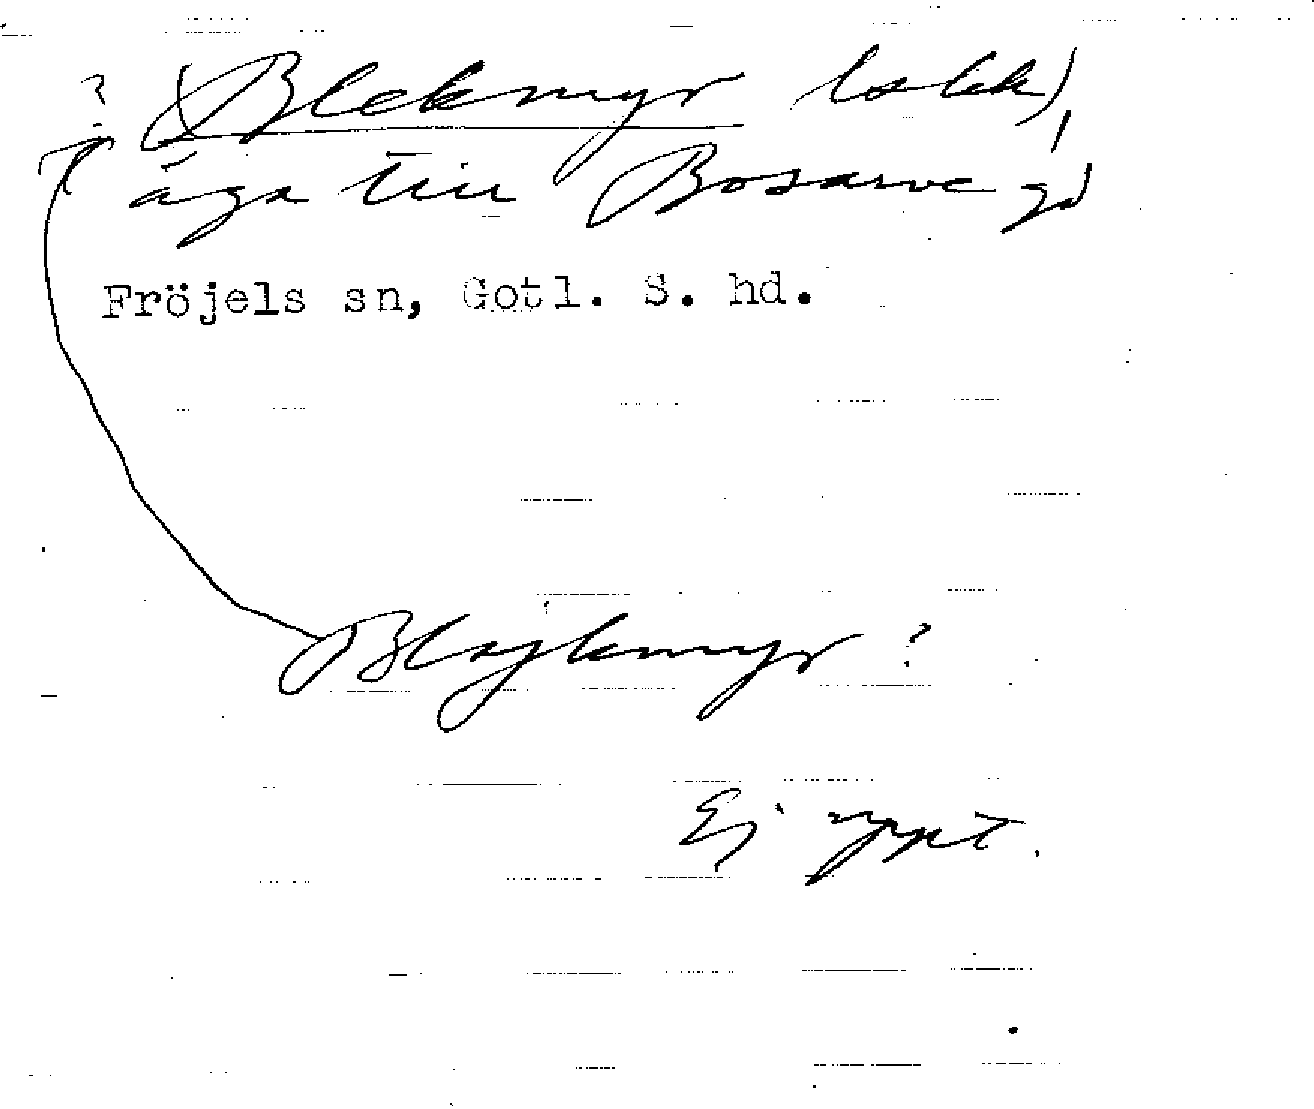 ? (Blekmyr
äga till Bosarve gd
Fröjels sn, Gotl. S. hd.
Blajkmyr?
Ej uppt.